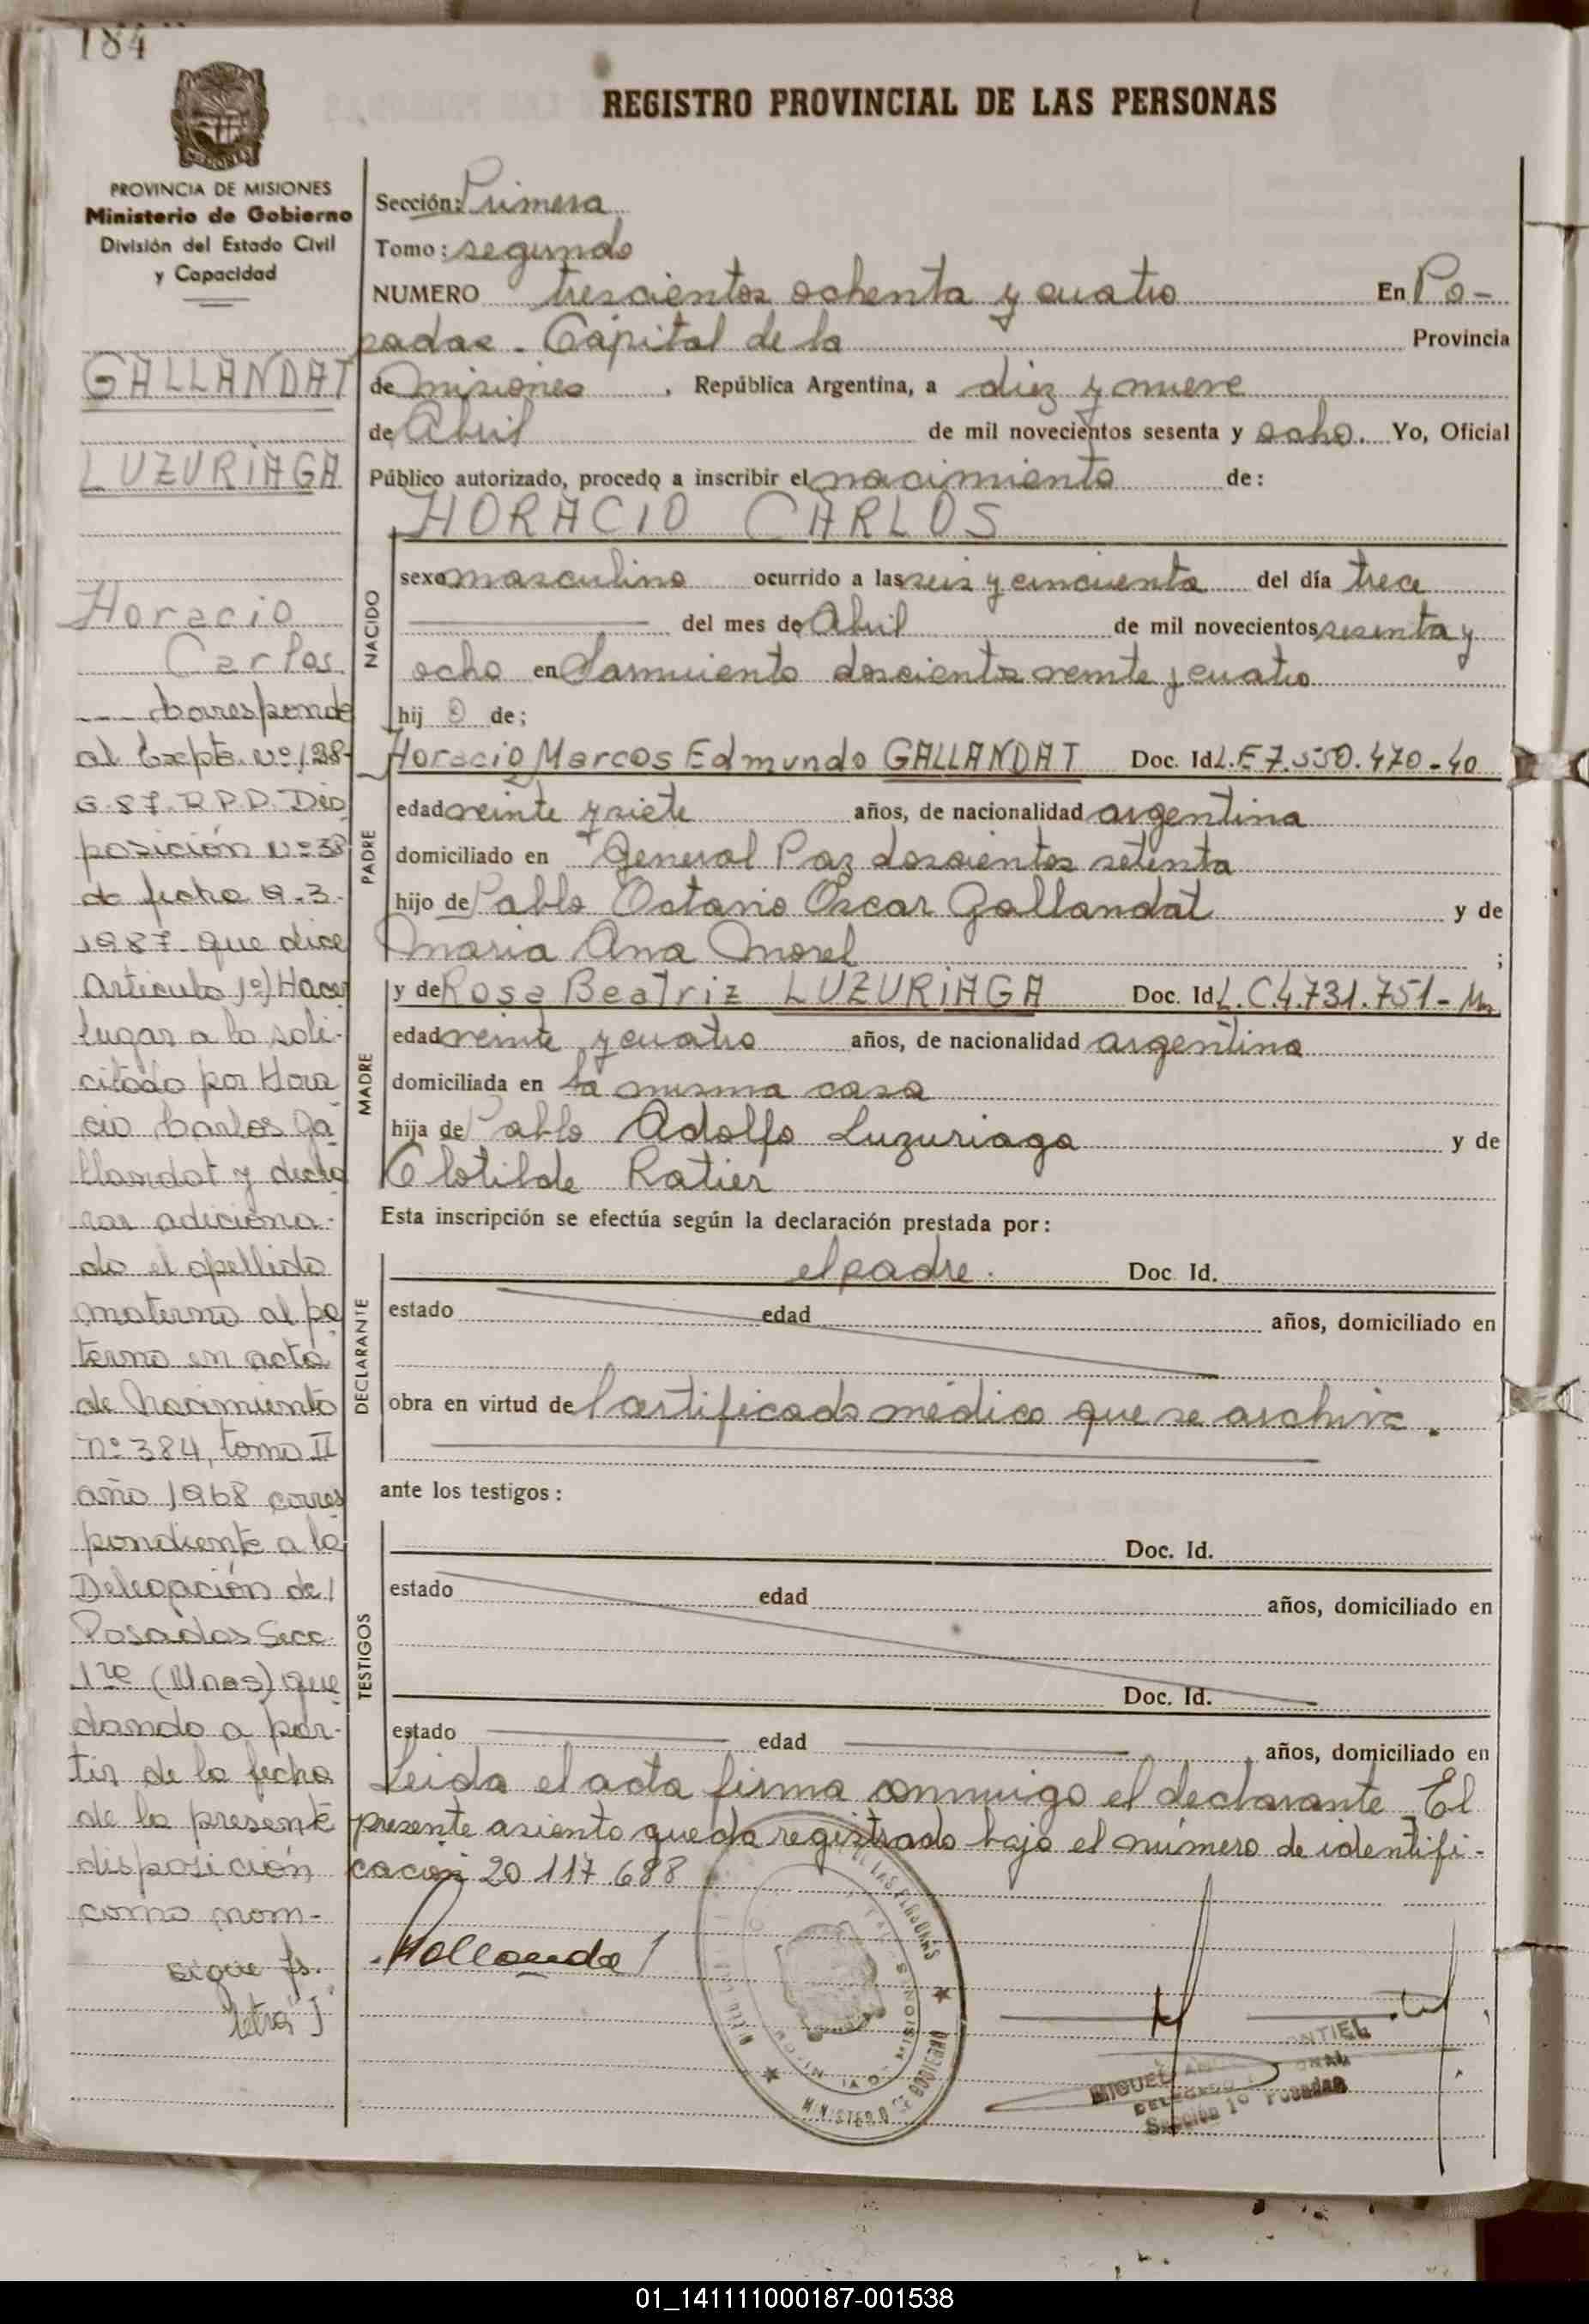 184
REGISTRO PROVINCIAL DE LAS PERSONAS
PROVINCIA DE MISIONES
Ministerio de Gobierno
División del Estado Civil
y Capacidad
GALLANDAT
LUZURIAGA
Horacio
Carlos
--- Corresponde
al Expte. Nº 138-
G 87 R.P.P. Dis
posición Nº 38
de fecha 9-3-
1987 que dice
Artículo 1º) Hacer
lugar a lo soli-
citado por Hora
cio Carlos Ga
llandat y decla
rar adiciona-
do el apellido
materno al pa
terno en acta
de Nacimiento
Nº 384, tomo II
año 1968 corres
pondiente a la
Delegación de
Posadas Secc.
1ra (Mnes) que
dando a par-
tir de la fecha
de la presente
disposición
como nom-
sigue fs.
letra "J"
Sección: Primera
Tomo: segundo
NUMERO trescientos ochenta y cuatro En Po-
sadas. Capital de la Provincia
de Misiones, República Argentina, a diez y nueve
de Abril de mil novecientos sesenta y ocho. Yo, Oficial
Público autorizado, procedo a inscribir el nacimiento de:
HORACIO CARLOS
NACIDO
sexo masculino ocurrido a las seis y cincuenta del día trece
del mes de Abril de mil novecientos sesenta y
ocho en Sarmiento doscientos veinte y cuatro
hij o de;
PADRE
Horacio Marcos Edmundo GALLANDAT Doc. Id. L.E 7.550.470-40
edad veinte y siete años, de nacionalidad argentina
domiciliado en General Paz doscientos setenta
hijo de Pablo Octavio Oscar Gallandat y de
Maria Ana Morel ;
MADRE
y de Rosa Beatriz LUZURIAGA Doc. Id. L.C.4.731.751-
edad veinte y cuatro años, de nacionalidad argentina
domiciliada en la misma casa
hija de Pablo Adolfo Luzuriaga y de
Clotilde Ratier
Esta inscripción se efectúa según la declaración prestada por:
DECLARANTE
el padre. Doc Id.
estado edad años, domiciliado en
obra en virtud de Certificado médico que se archiva.
ante los testigos:
TESTIGOS
Doc. Id.
estado edad años, domiciliado en
Doc. Id.
estado edad años, domiciliado en
Leida el acta firma conmigo el declarante El
presente asiento queda registrado bajo el número de identifi-
cacion 20 117 688
MINISTERIO DE GOBIERNO
MIGUEL
Sección 1º Posadas
01_141111000187-001538